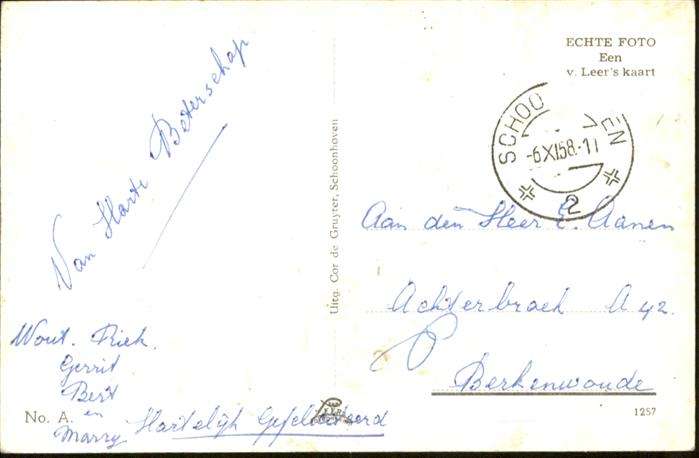 Van Harte Beterschap
Wout. Riek.
Gerrit
Bert
en
Marry
Hartelijk Gefeliciteerd
No. A.
Uitg. Cor de Gruyter, Schoonhoven
ECHTE FOTO
Een
v. Leer's kaart
SCHOO EN
-6 XI58.-11
2
Aan den Heer E. Aanen
Achterbroek A 42.
Berkenwoude
1257